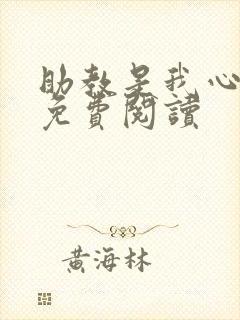 助教是我心
免費閱讀
黃海林